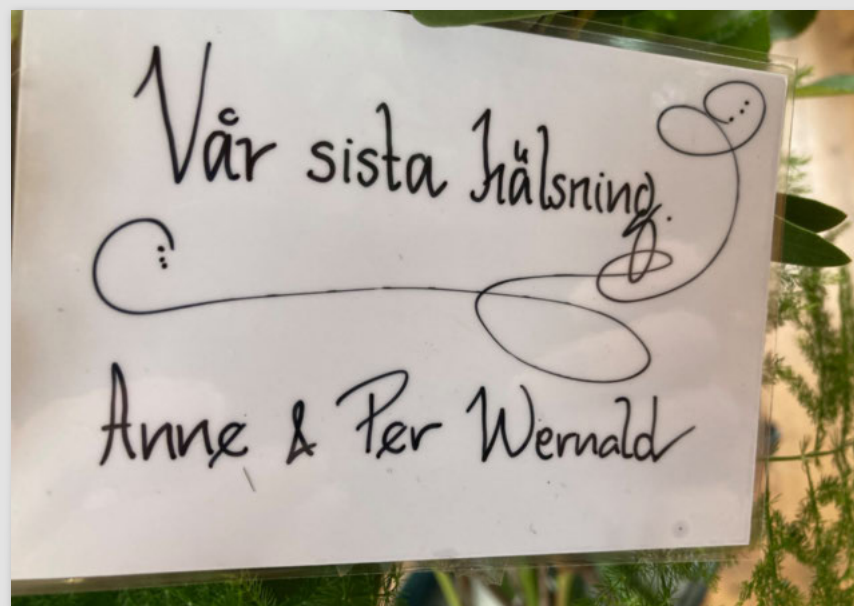 Vår sista hälsning.
Anne & Per Wernald